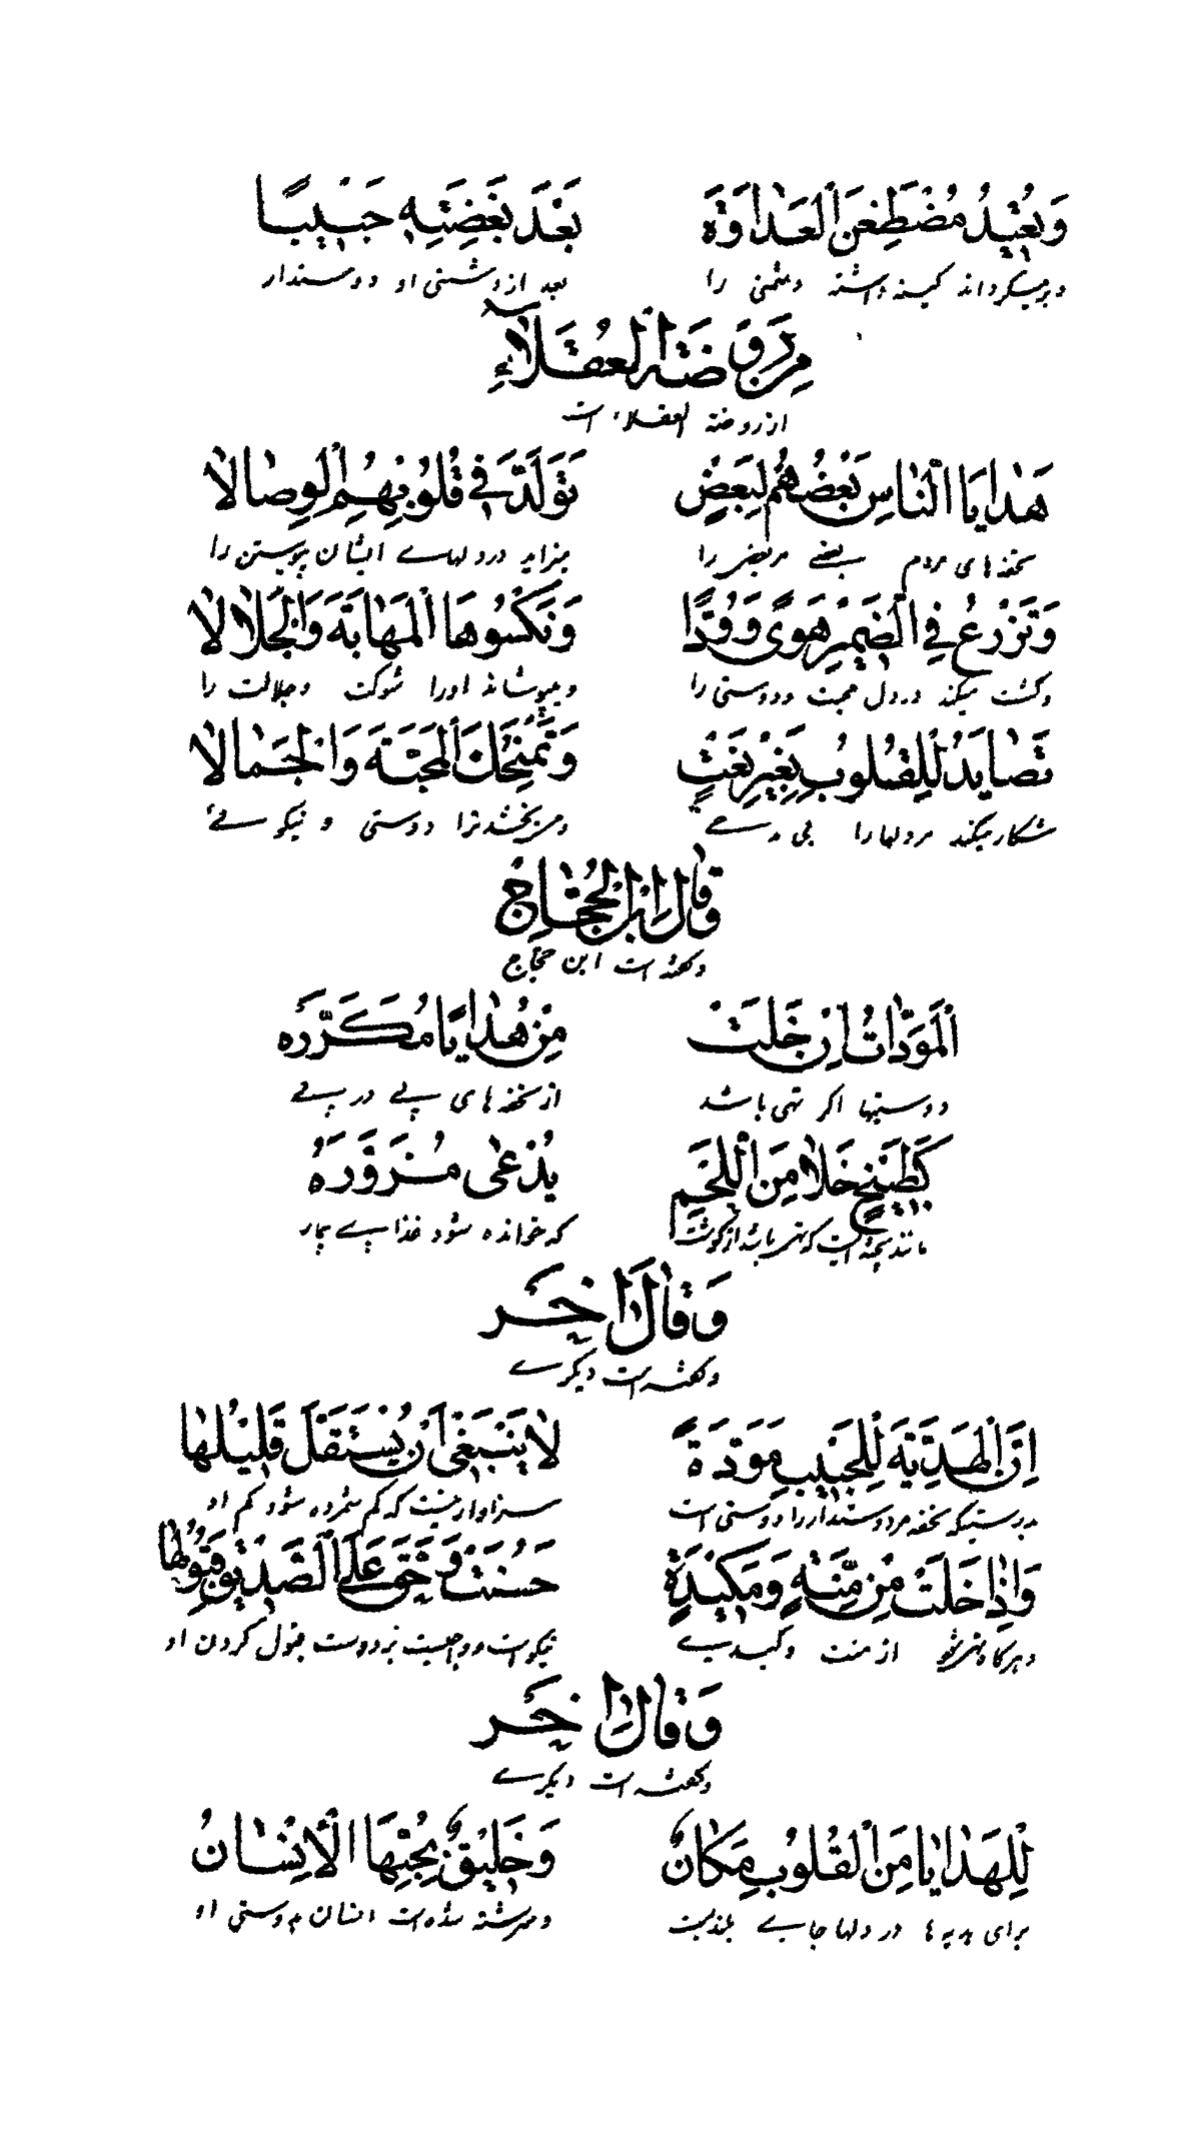 وَيُعِيدُ مُضْطَغِنَ الْعَدَاوَةِ بَعْدَ بَغْضَتِهِ حَبِيبًا
و میگرداند کینه داشته دشمنی را بعد از دشمنی او دوستدار
مِن رَوضَةِ الْعُقَلَاءِ
از روضة العقلاء است
هَدَايَا النَّاسِ بَعْضُهُمْ لِبَعْضٍ تَوَلَّدَ فِي قُلُوبِهِمُ الْوِصَالَا
تحفه های مردم بعضے مر بعض را میزاید در دلهاے ایشان پیوستن را
وَتَزْرَعُ فِي الضَّمِيرِ هَوًى وَوُدًّا وَتَكْسُوهَا الْمَهَابَةَ وَالْجَلَالَا
و کشت میکند در دل محبت و دوستی را و میپوشاند او را شوکت و جلالت را
تَصَايَدُ لِلْقُلُوبِ بِغَيْرِ بَغْثٍ وَتَمْنَحُكَ الْمَحَبَّةَ وَالْجَمَالَا
شکار میکند مر دلها را بی و می بخشد ترا دوستی و نیکوئے
وَقَالَ ابْنُ الْحَجَّاجِ
و گفته است ابن حجاج
الْمَوَدَّاتُ إِنْ خَلَتْ مِنْ هَدَايَا مُكَرَّرَه
دوستیها اگر تهی باشد از تحفه های پے در پے
كَطَبِيخٍ خَلَا مِنَ اللَّحْمِ يُدْعَى مُزَوَّرَهُ
مانند پخته است که تهی باشد از گوشت که خوانده شود غذاے بیمار
وَقَالَ اٰخَر
و گفته است دیگرے
اِنَّ الْهَدِيَّةَ لِلْحَبِيبِ مَوَدَّةٌ لَا يَنْبَغِي أَنْ يُسْتَقَلَّ قَلِيلُهَا
بدرستیکه تحفه مر دوستدار را دوستی است سزاوار نیست که کم شمرده شود کم او
وَإِذَا خَلَتْ مِنْ مِنَّةٍ وَمَكِيدَةٍ حَسُنَتْ وَحَقَّ عَلَى الصَّدِيقِ قَبُولُهَا
و هرگاه تهی شود از منت و کید نیکو است و واجب است بر دوست قبول کردن او
وَقَالَ اٰخَر
و گفته است دیگرے
لِلْهَدَايَا مِنَ الْقُلُوبِ مَكَانٌ وَخَلِيقٌ بِحُبِّهَا الْإِنْسَانُ
برای هدیه ها در دلها جاے بلند است و سرشته شده است انسان بدوستی او